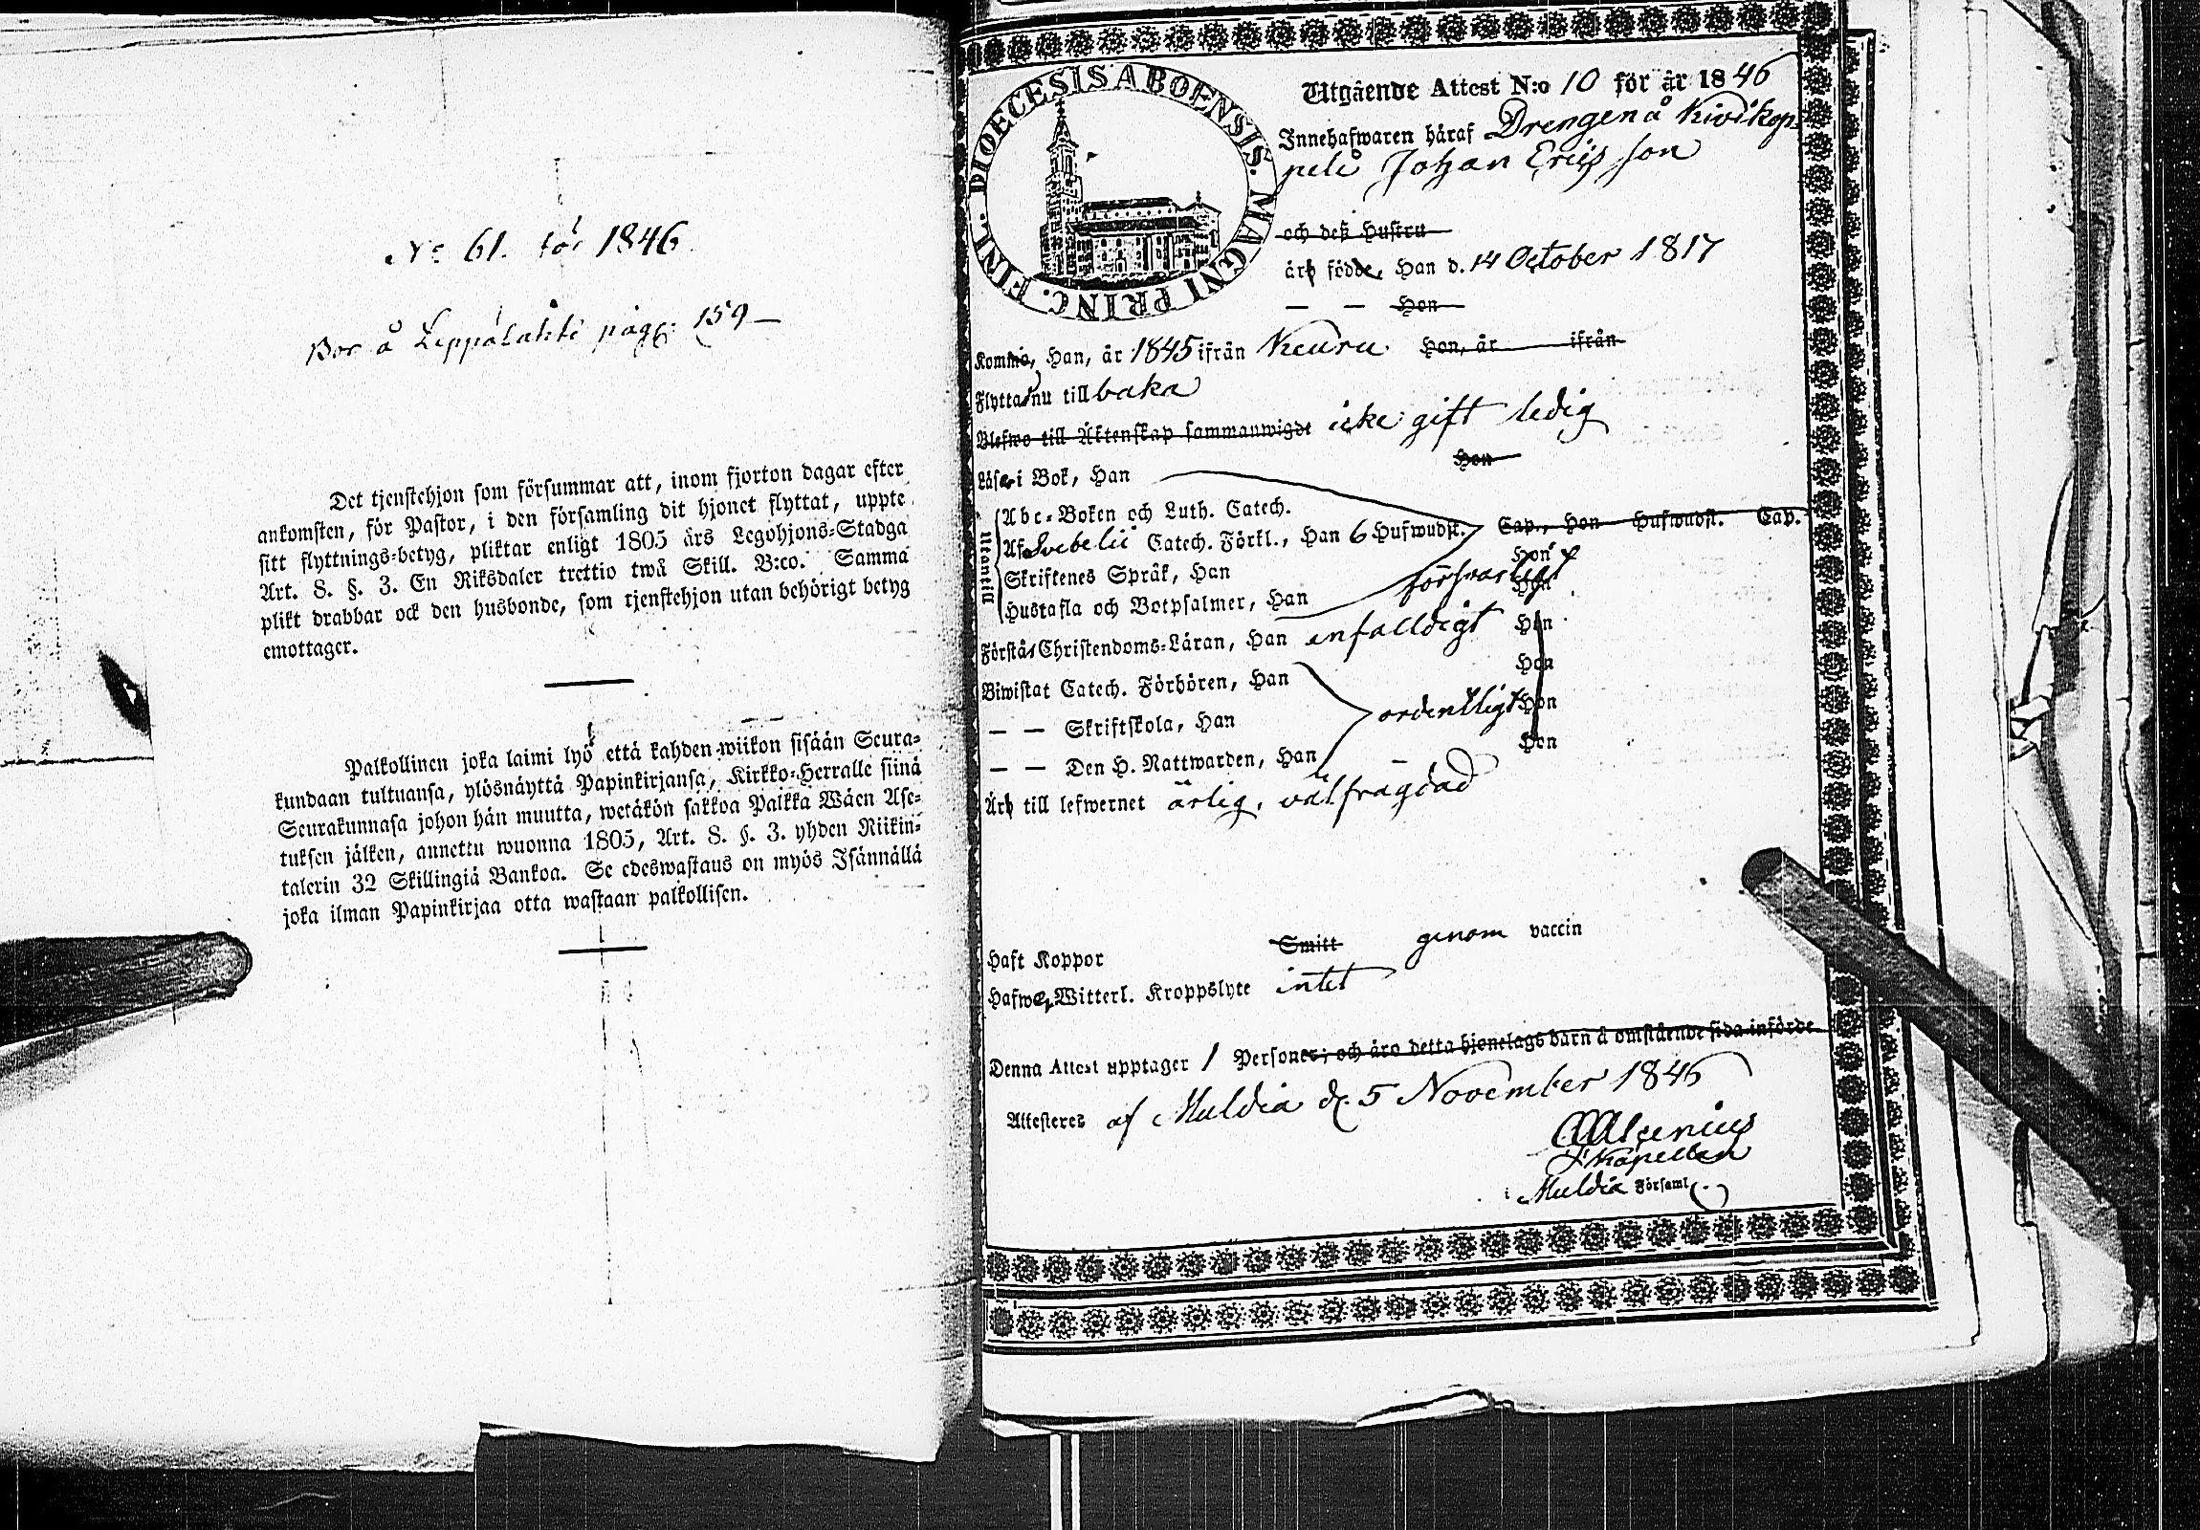 No 61. för 1846.
Bor å Leppälahti pag: 159 —
Det tjenstehjon som försummar att, inom fjorton dagar efter
ankomsten, för Pastor, i den församling dit hjonet flyttat, uppte
sitt flyttnings-betyg, pliktar enligt 1805 års Legohjons-Stadga
Art. 8. §. 3. En Riksdaler trettio twå Skill. B:co. Samma
plikt drabbar ock den husbonde, som tjenstehjon utan behörigt betyg
emottager.
Palkollinen joka laimi lyö että kahden wiikon sisään Seura-
kundaan tultuansa, ylösnäyttä Papinkirjansa, Kirkko-Herralle siinä
Seurakunnasa johon hän muutta, wetäkön sakkoa Palkka Wäen Ase-
tuksen jälken, annettu wuonna 1805, Art. 8. §. 3. yhden Riikin-
talerin 32 Skillingiä Bankoa. Se edeswastaus on myös Isännällä
joka ilman Papinkirjaa otta wastaan palkollisen.
DIOECESIS ABOENSIS. MAGNI PRINC. FINL.
Utgående Attest N:o 10 för år 1846
Innehafwaren häraf Drengen å Kivikop-
peli Johan Ericsson
och deß Hustru
äro födde, Han d. 14 October 1817
— — Hon
Komne, Han, år 1845 ifrån Keuru Hon, år ifrån
Flytta nu till baka
Blefwo till Äktenskap sammanwigde icke gift ledig
Läser i Bok, Han Hon
Utantill
Abc-Boken och Luth. Catech.
Af Svebelii Catech. Förkl., Han 6 Hufwudst. Cap., Hon Hufwudst. Cap.
Skriftenes Språk, Han Hon
Hustafla och Botpsalmer, Han försvarligt Hon
Förstår Christendoms-Läran, Han enfalldigt Hon
Biwistat Catech. Förhören, Han Hon
— — Skriftskola, Han ordentligt Hon
— — Den H. Nattwarden, Han Hon
Äro till lefwernet ärlig, välfrägdad
Haft Koppor Smitt genom vaccin
Hafwa Witterl. Kroppslyte intet
Denna Attest upptager 1 Personer; och äro detta hjonelags barn å omstående sida införde.
Attesteres af Muldia d. 5 November 1846
Kapellan
i Muldia Församl.